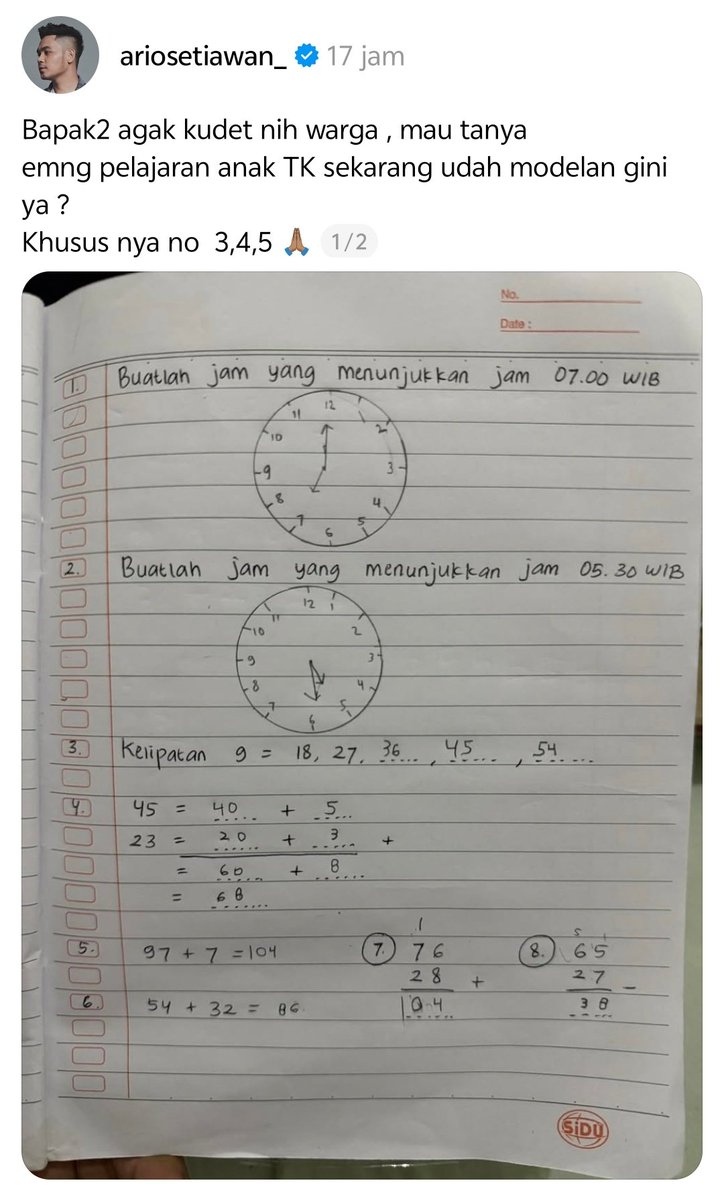 ariosetiawan_ 17 jam
Bapak2 agak kudet nih warga , mau tanya
emng pelajaran anak TK sekarang udah modelan gini
ya ?
Khusus nya no 3,4,5 🙏🏽 1/2
No.
Date :
1. Buatlah jam yang menunjukkan jam 07.00 WIB
12 1 2 3 4 5 6 7 8 9 10 11
2. Buatlah jam yang menunjukkan jam 05.30 WIB
12 1 2 3 4 5 6 7 8 9 10 11
3. Kelipatan 9 = 18, 27, 36 , 45 , 54
4. 45 = 40 + 5
23 = 20 + 3 +
= 60 + 8
= 68
5. 97 + 7 = 104
6. 54 + 32 = 86
7. 1
76
28 +
104
8. 5 1
65
27 -
38
SiDU